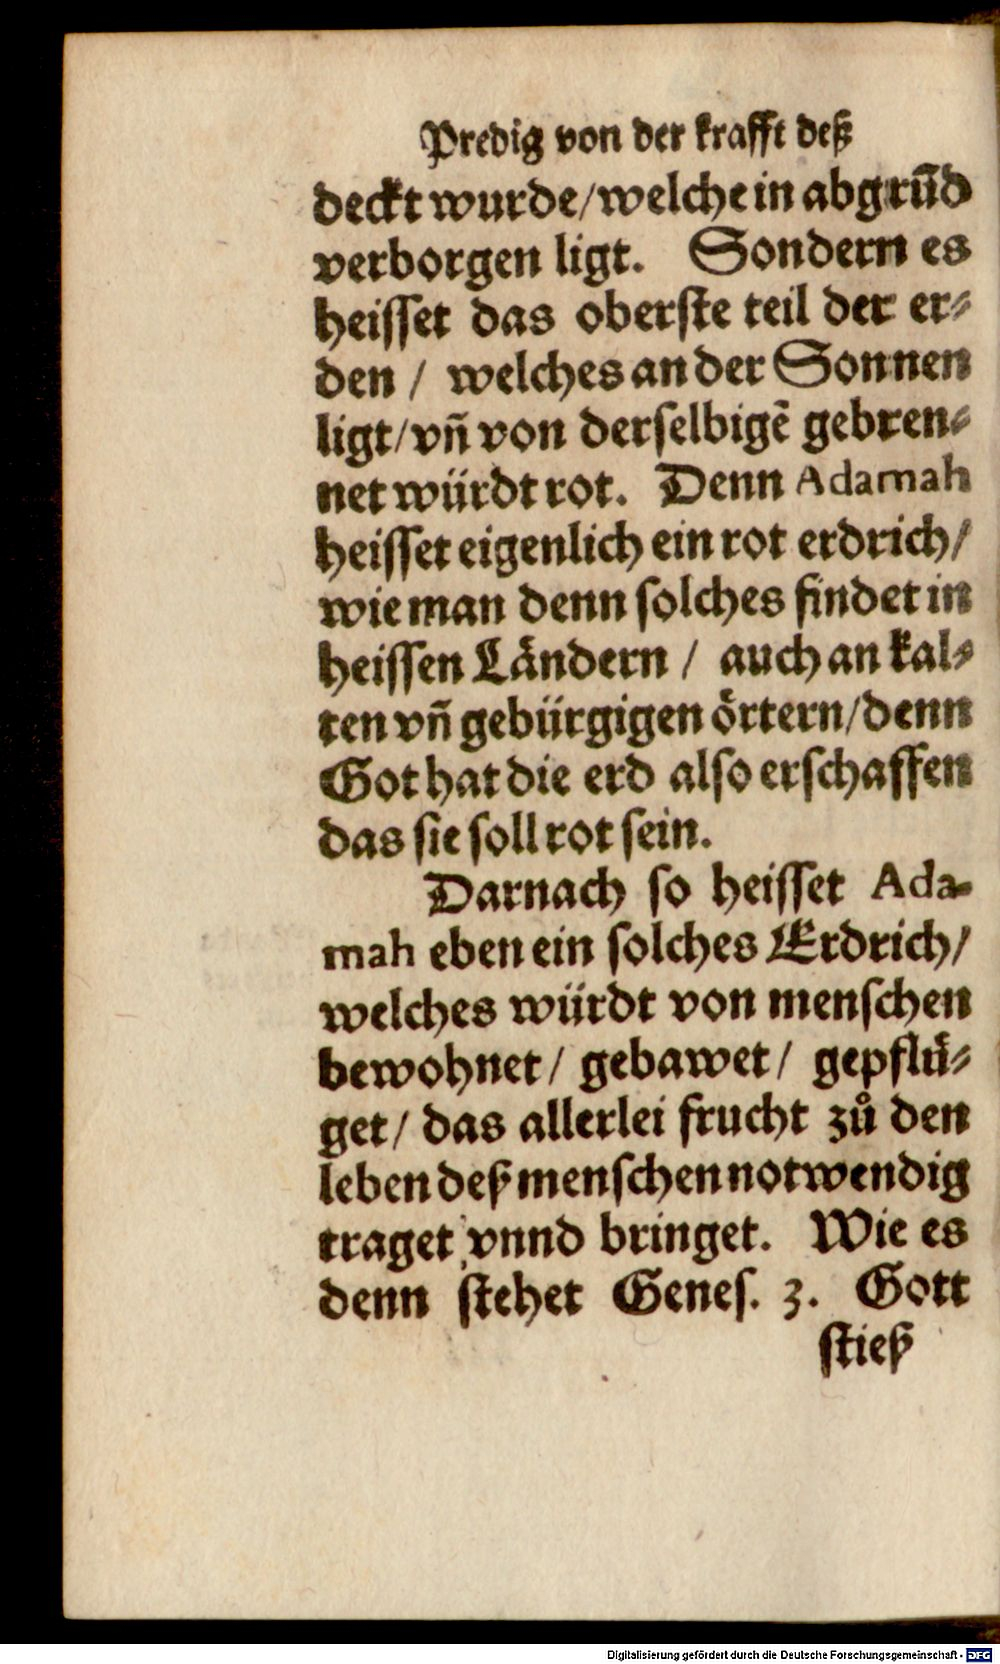 Predig von der krafft deß
deckt wurde/welche in abgrũd
verborgen ligt. Sondern es
heisset das oberste teil der er⸗
den / welches an der Sonnen
ligt/vñ von derselbigẽ gebren⸗
net würdt rot. Denn Adamah
heisset eigenlich ein rot erdrich/
wie man denn solches findet in
heissen Ländern / auch an kal⸗
ten vñ gebürgigen örtern/denn
Got hat die erd also erschaffen
das sie soll rot sein.
Darnach so heisset Ada-
mah eben ein solches Erdrich/
welches würdt von menschen
bewohnet/ gebawet/ gepflü⸗
get/ das allerlei frucht zů den
leben deß menschen notwendig
traget vnnd bringet. Wie es
denn stehet Genes. 3. Gott
stieß
Digitalisierung gefördert durch die Deutsche Forschungsgemeinschaft - DFG